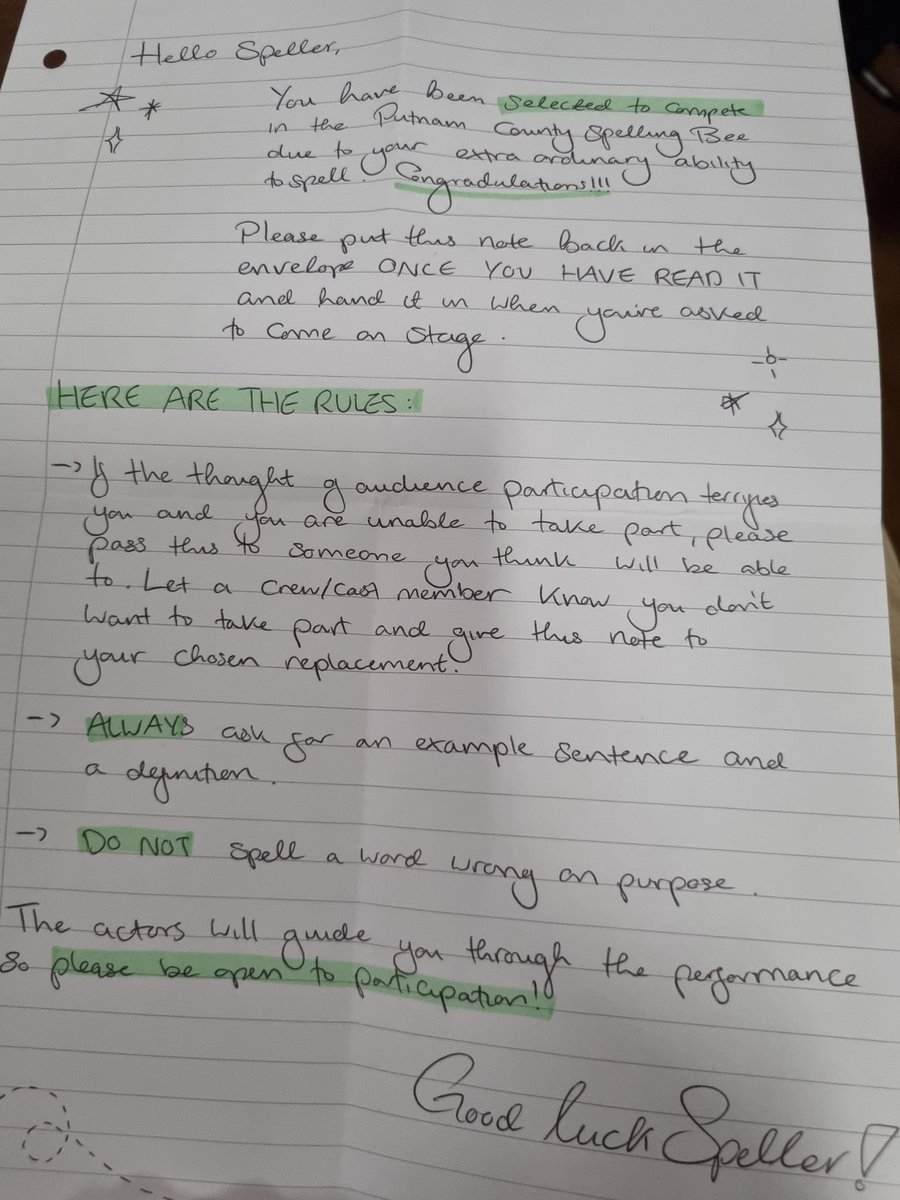 Hello Speller,
You have been selected to compete
in the Putnam County Spelling Bee
due to your extra ordinary ability
to spell. Congradulations!!!
Please put this note back in the
envelope ONCE YOU HAVE READ IT
and hand it in when you're asked
to come on stage.
HERE ARE THE RULES:
-> If the thought of audience participation terrifies
you and you are unable to take part, please
pass this to someone you think will be able
to. Let a crew/cast member know you don't
want to take part and give this note to
your chosen replacement.
-> ALWAYS ask for an example sentence and
a definition.
-> DO NOT spell a word wrong on purpose.
The actors will guide you through the performance
so please be open to participation!
Good luck Speller!